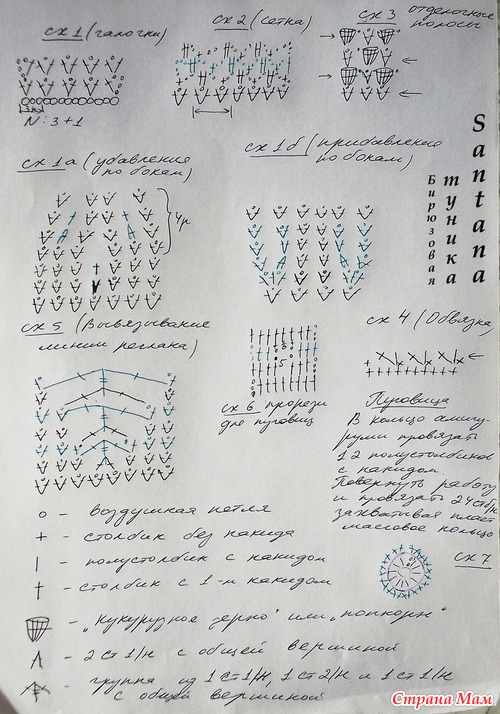 сх 1 (галочки)
N: 3 + 1
сх 2 (сетка)
сх 3 отделочные
полосы
сх 1а (убавления
по бокам)
4р
сх 1б (прибавление
по бокам)
Santana
туника
Бирюзовая
сх 5 (Вывязывание
линии реглана)
сх 6 прорези
для пуговиц
сх 4 (Обвязка)
Пуговица
В кольцо амигу-
руми провязать
12 полустолбиков
с накидом
Повернуть работу
и провязать 24 стб/н
захватывая пласт
массовое кольцо
сх 7
о – воздушная петля
+ – столбик без накида
| – полустолбик с накидом
† – столбик с 1-м накидом
– „Кукурузное зерно" или „попкорн"
– 2 ст 1/н с общей вершиной
– группа из 1 ст 1/н, 1 ст 2/н и 1 ст 1/н
с общей вершиной
Страна Мам